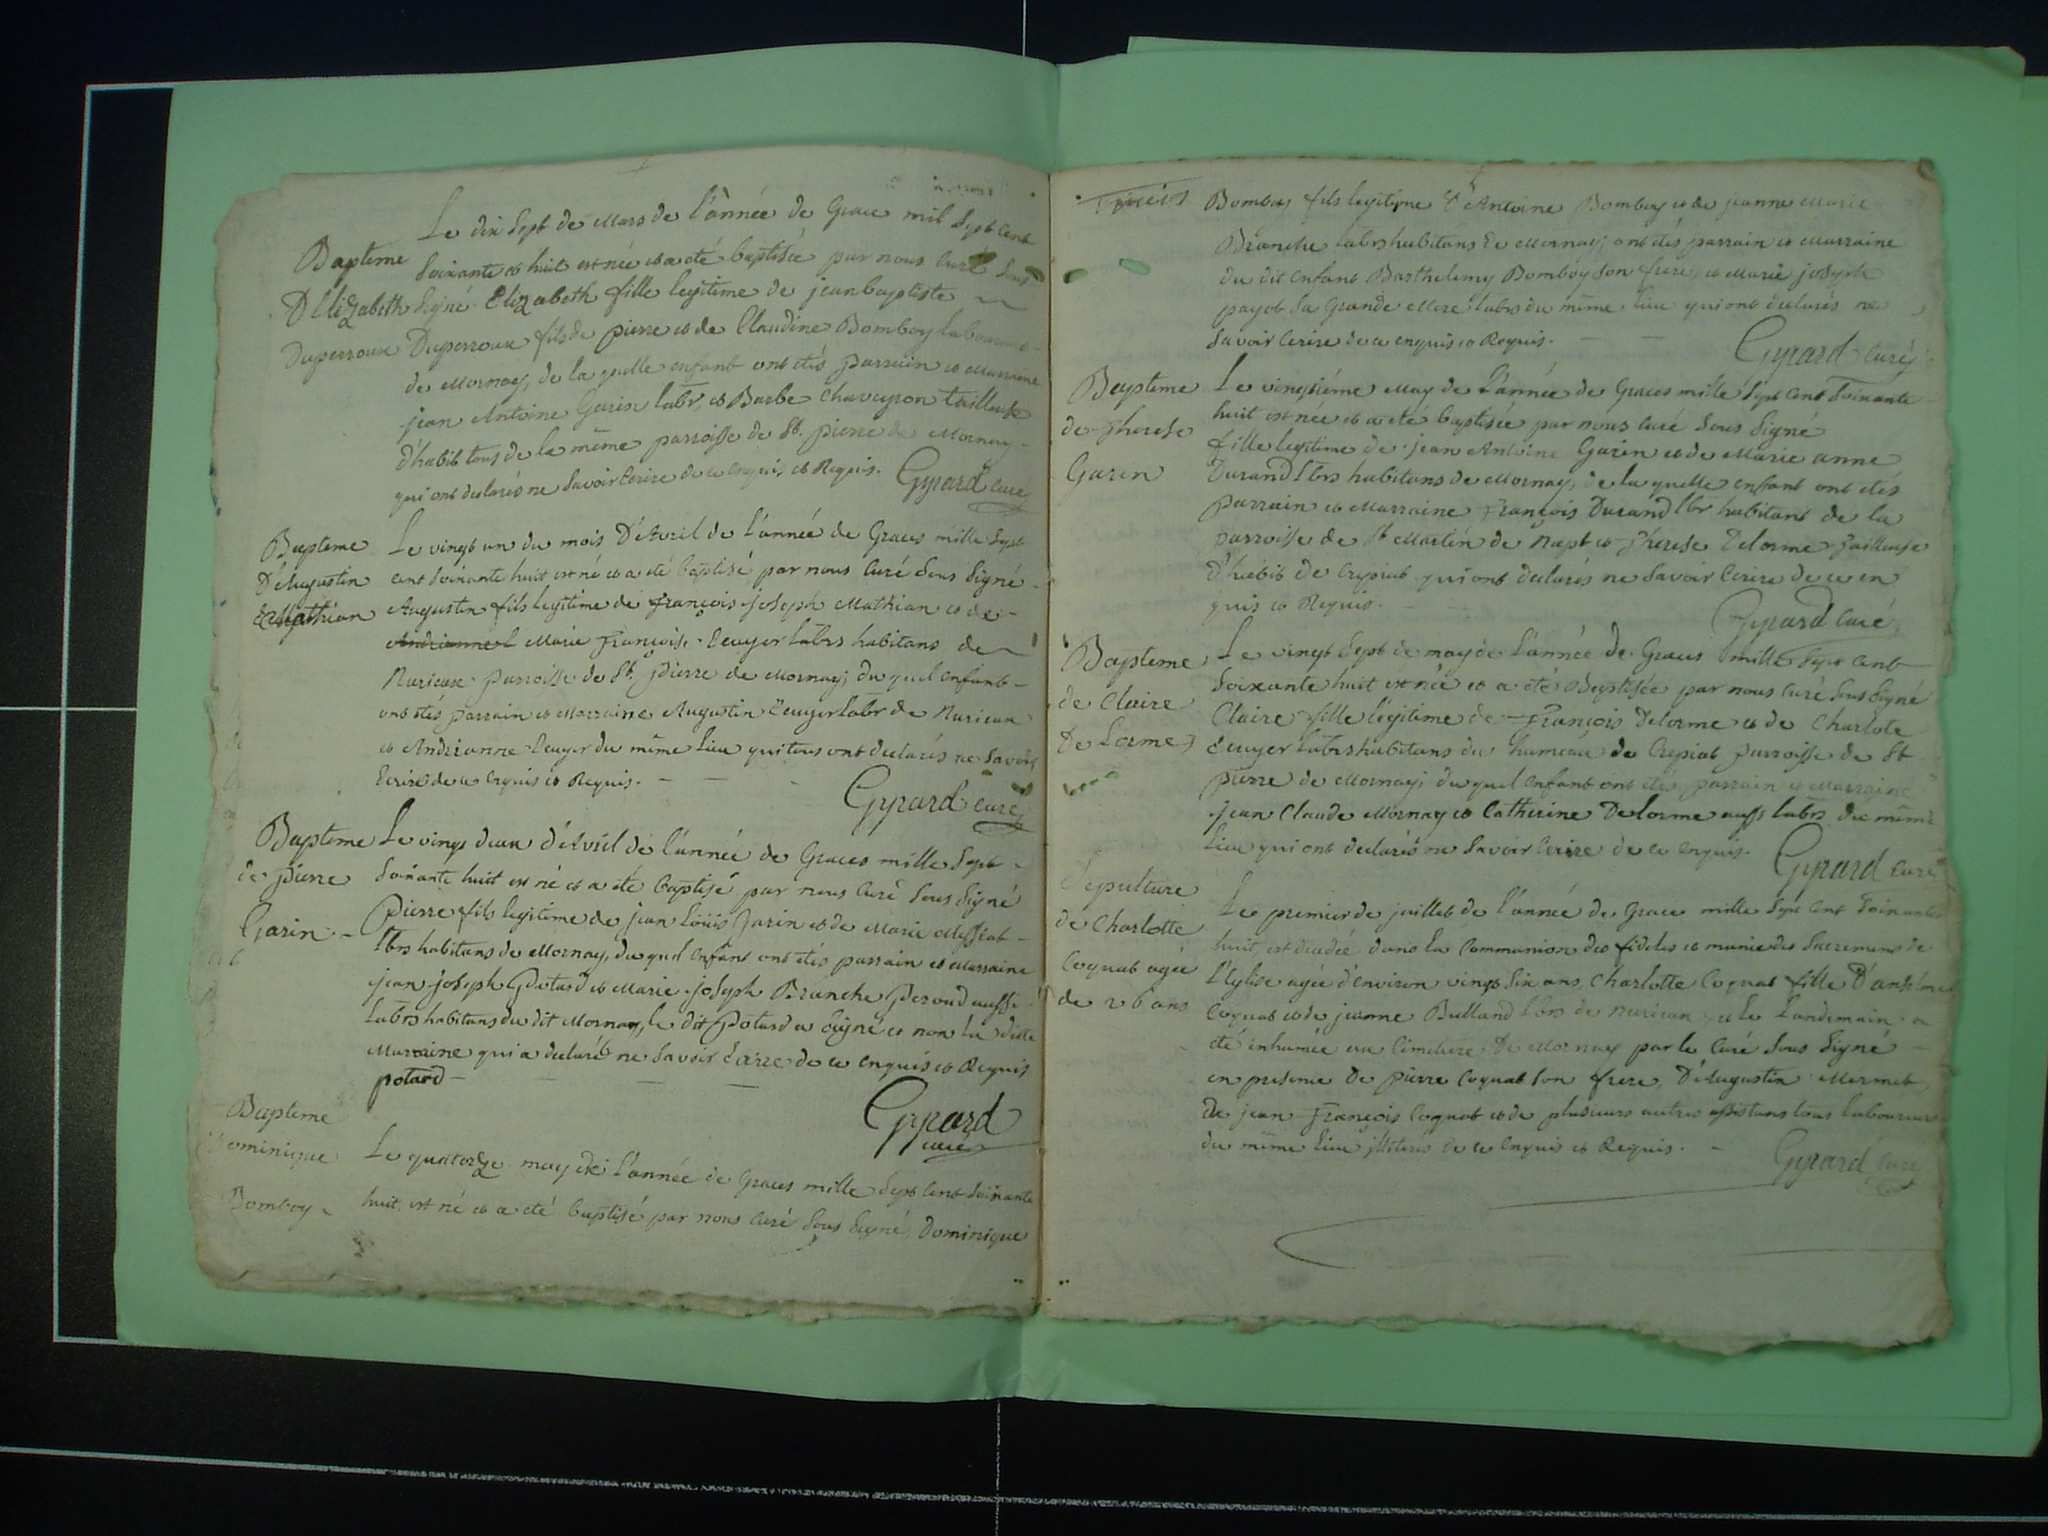 Le dix Sept de Mars de l'année de Grace mil Sept Cent
Bapteme
D'Elizabeth
Duperroux
Soixante et huit est née et a eté baptisée par nous Curé Sous
Signé Elizabeth fille legitime de jean baptiste
Duperroux fils de pierre et de Claudine Bomboy laboureurs
de Mornay, de la quelle enfant ont etés parrain et Marraine
jean Antoine Garin labr, et Barbe Chaveyron tailleuse
d'habit tous de la même parroisse de St. pierre de Mornay
qui ont declarés ne Savoir Ecrire de ce enquis et Requis. Gyrard Curé
Bapteme
D'Augustin
Mathian
Le vingt un du mois D'Avril de l'année de Graces mille Sept
cent Soixante huit est né et a eté baptisé par nous Curé Sous Signé
Augustin fils legitime de françois joseph Mathian et de
Andrianne Marie Françoise Ecuyer labrs habitans de
Nurieux parroisse de St. Pierre de Mornay; du quel Enfant
ont etés parrain et Marraine Augustin Ecuyer labr de Nurieux
et Andrianne Ecuyer du même lieu qui tous ont declarés ne Savoir
Ecrire de ce enquis et Requis.
Gyrard Curé
Bapteme
de pierre
Garin
Le vingt deux d'Avril de l'année de Graces mille Sept
Soixante huit est né et a eté baptisé par nous Curé Sous Signé
Pierre fils legitime de jean Louis Garin et de Marie
lbrs habitans de Mornay, du quel Enfant ont etés parrain et Marraine
jean joseph Potard et Marie joseph Branche Peroud aussi
labrs habitans du dit Mornay, le dit Potard a Signé et non la ditte
Marraine qui a declaré ne Savoir Ecrire de ce enquis et Requis
potard
Gyrard
curé
Bapteme
Dominique
Bomboy
Le quatorze may de l'année de Graces mille Sept Cent Soixante
huit, est né et a eté baptisé par nous Curé Sous Signé, Dominique
Bomboy fils legitime D'Antoine Bomboy et de jeanne Marie
Branche labrs habitans de Mornay; ont etés parrain et Marraine
du dit Enfant Barthelemy Bomboy Son frere, et Marie josephe
payot Sa Grande Mere labrs du même lieu qui ont declarés ne
Savoir Ecrire de ce enquis et Requis.
Gyrard Curé
Bapteme
de Therese
Garin
Le vingtiéme May de l'année de Graces mille Sept Cent Soixante
huit est née et a eté baptisée par nous Curé Sous Signé
fille legitime de jean Antoine Garin et de Marie anne
Durand lbrs habitans de Mornay, de la quelle enfant ont etés
parrain et Marraine François Durand lbr habitant de la
parroisse de St Martin de Napt et Thérese Delorme Tailleuse
D'habit de Crepiat qui ont declarés ne Savoir Ecrire de ce en
quis et Requis.
Gyrard Curé
Bapteme
de Claire
De Lorme
Le vingt Sept de may de l'année de Graces mille Sept Cent
Soixante huit est née et a eté Baptisée par nous Curé Sous Signé
Claire fille légitime de François Delorme et de Charlote
Ecuyer labrs habitans du hameau de Crepiat parroisse de St
pierre de Mornay; du quel Enfant ont etés parrain et Marraine
Jean Claude Mornay et Catherine Delorme aussi labrs du même
Lieu qui ont declarés ne Savoir Ecrire de ce enquis.
Gyrard Curé
Sepulture
de Charlotte
Coquat agée
de 26 ans
Le premier de juillet de l'année de Grace mille Sept Cent Soixante
huit est decedée dans la Communion des fideles et munie des Sacremens de
l'Eglise agée d'environ vingt Six ans, Charlotte Coquat fille D'anselme
Coquat et de jeanne Balland lbrs de Nurieux et le Landemain a
été inhumée au Cimetiere De Mornay par le Curé Sous Signé
en presence de pierre Coquat Son frere, D'Augustin Mermet
De jean François Coquat et de plusieurs autres assistans tous laboureurs
du même Lieu illiterés de ce enquis et Requis.
Gyrard Curé